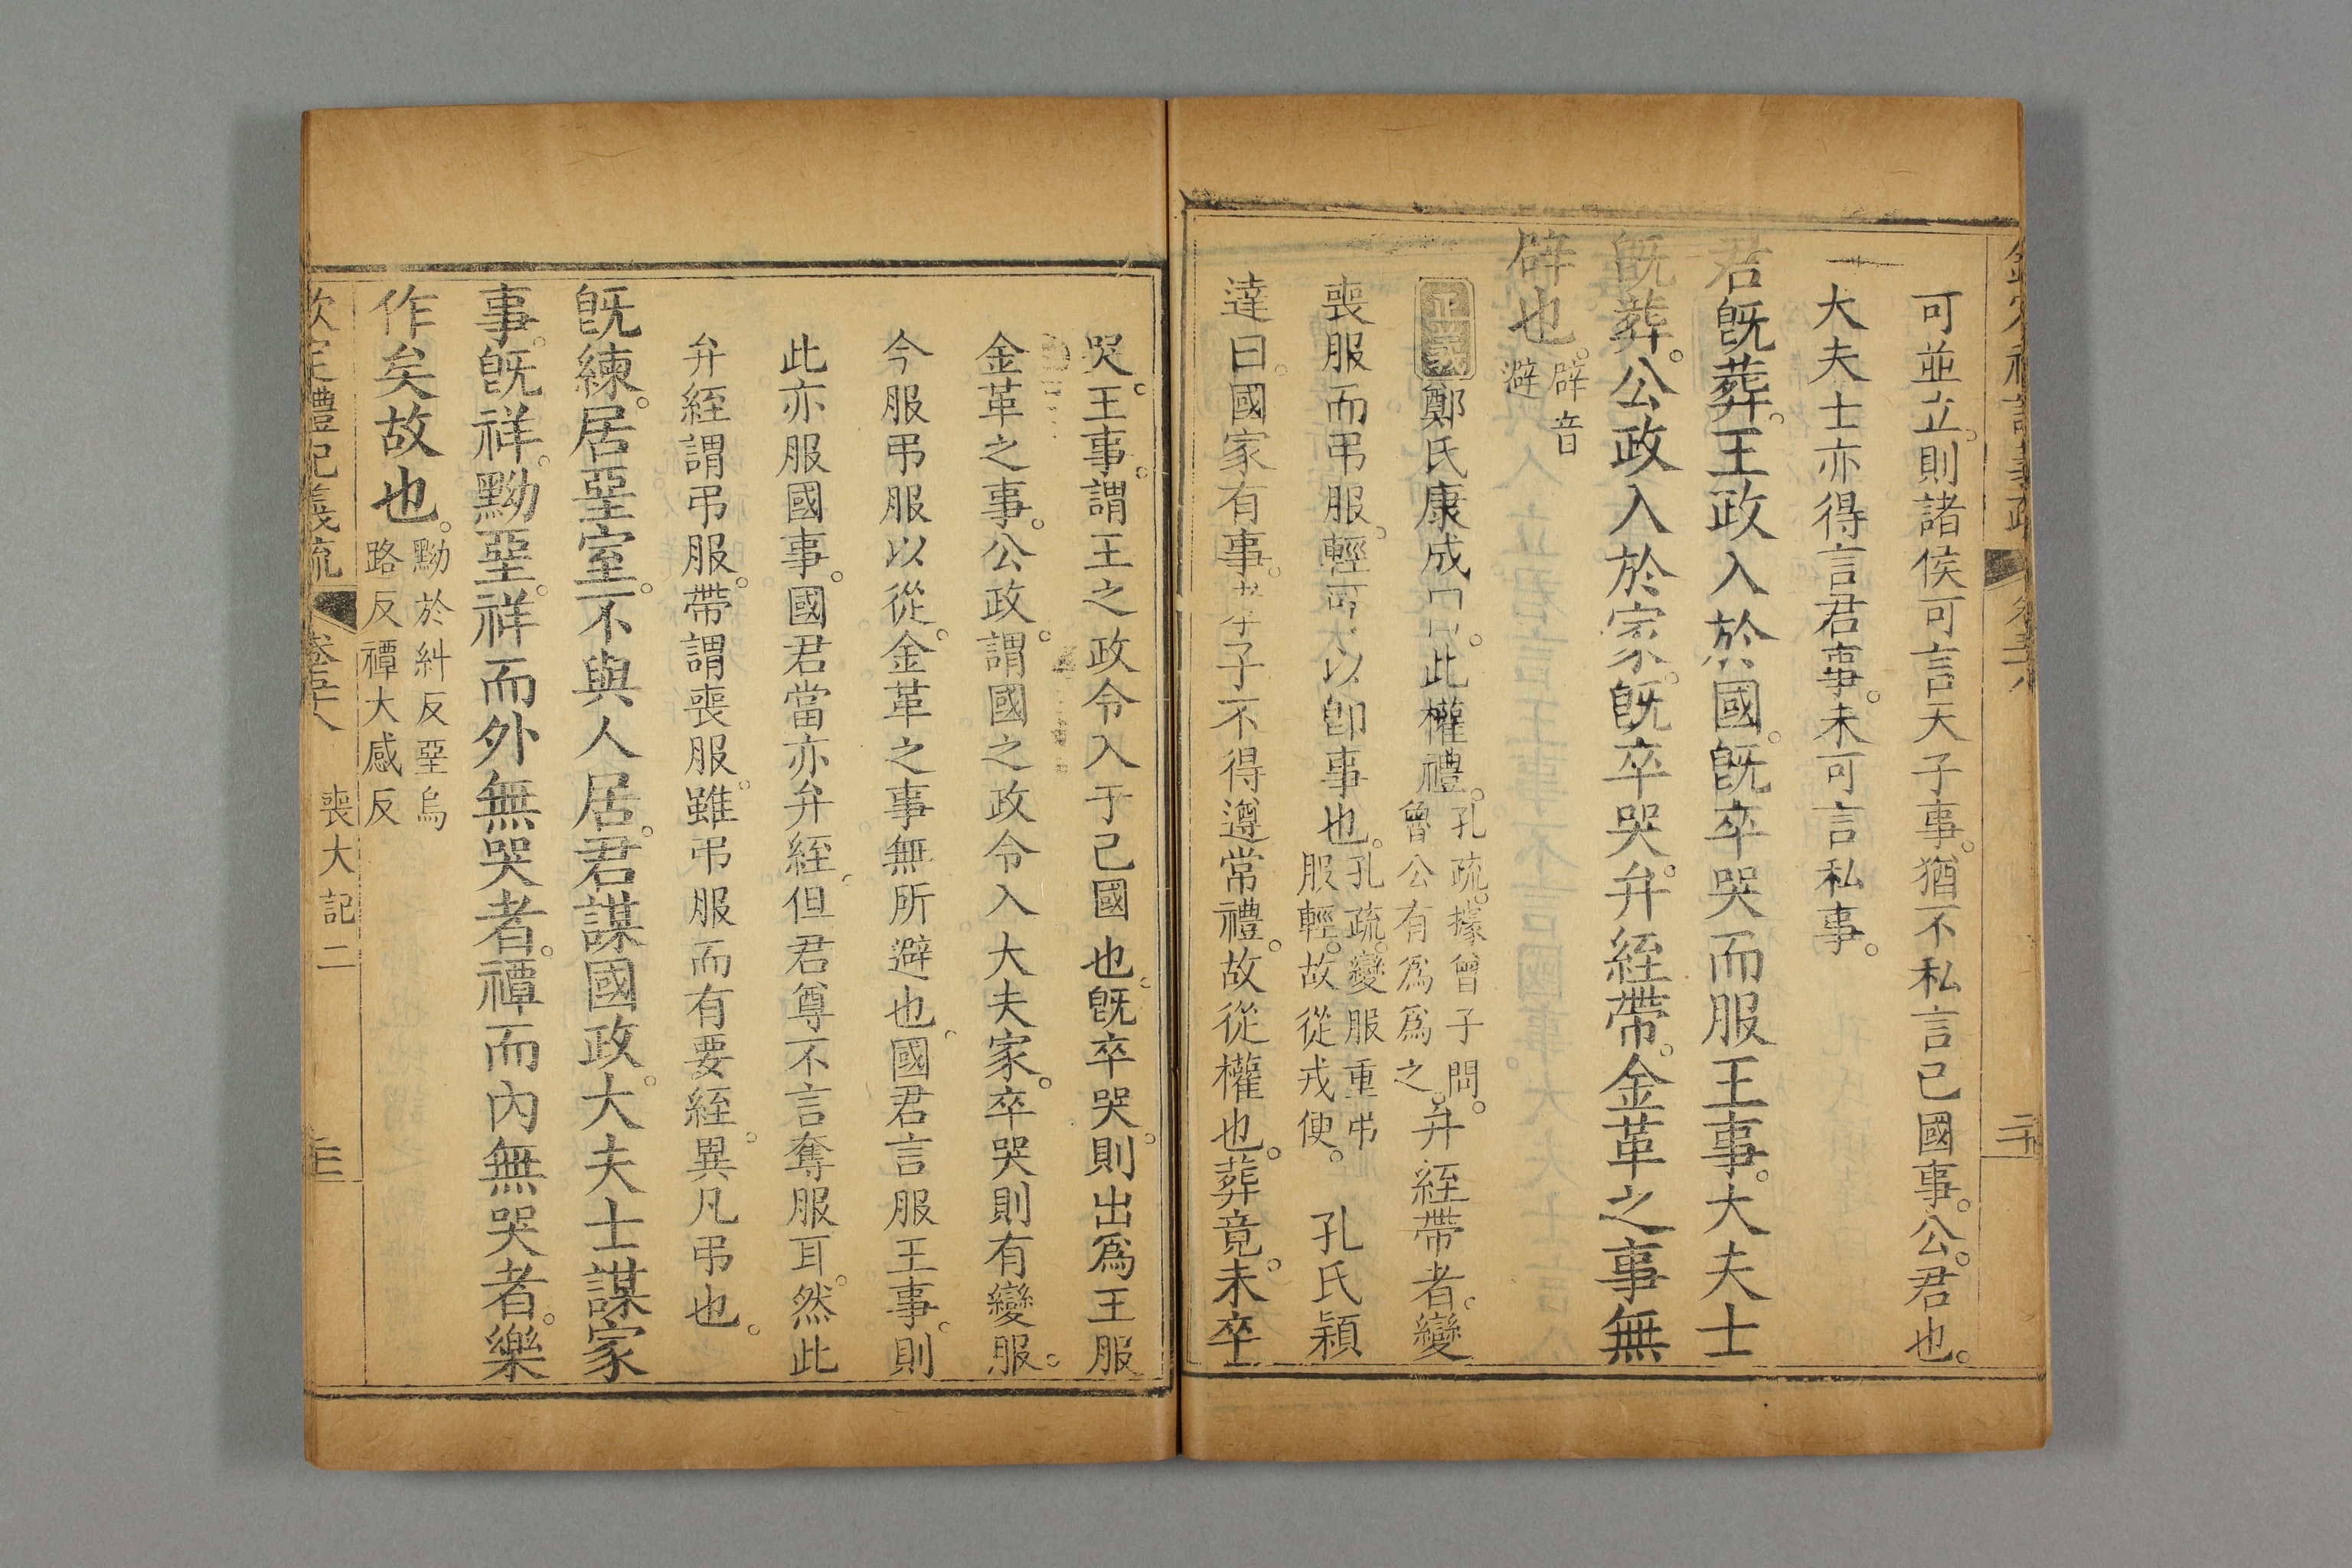 可並立。則諸侯可言天子事。猶不私言己國事。公。君也。
大夫士亦得言君事。未可言私事。
君既葬。王政入於國。既卒哭而服王事。大夫士
既葬。公政入於家。既卒哭。弁絰帶。金革之事無
辟也。辟音
避
正義鄭氏康成曰。此權禮。孔疏。據曾子問。
魯公有爲爲之。弁絰帶者。變
喪服而弔服。輕可以卽事也。孔疏。變服重弔
服輕。故從戎便。孔氏穎
達曰。國家有事。孝子不得遵常禮。故從權也。葬竟。未卒
哭。王事。謂王之政令入于己國也。既卒哭。則出爲王服
金革之事。公政。謂國之政令入大夫家。卒哭則有變服。
今服弔服以從。金革之事無所避也。國君言服王事。則
此亦服國事。國君當亦弁絰。但君尊不言奪服耳。然此
弁絰謂弔服。帶謂喪服。雖弔服而有要絰。異凡弔也。
既練。居堊室。不與人居。君謀國政。大夫士謀家
事。既祥。黝堊。祥而外無哭者。禫而內無哭者。樂
作矣故也。黝於糾反堊烏
路反禫大感反
欽定禮記義疏 卷五十八 喪大記二